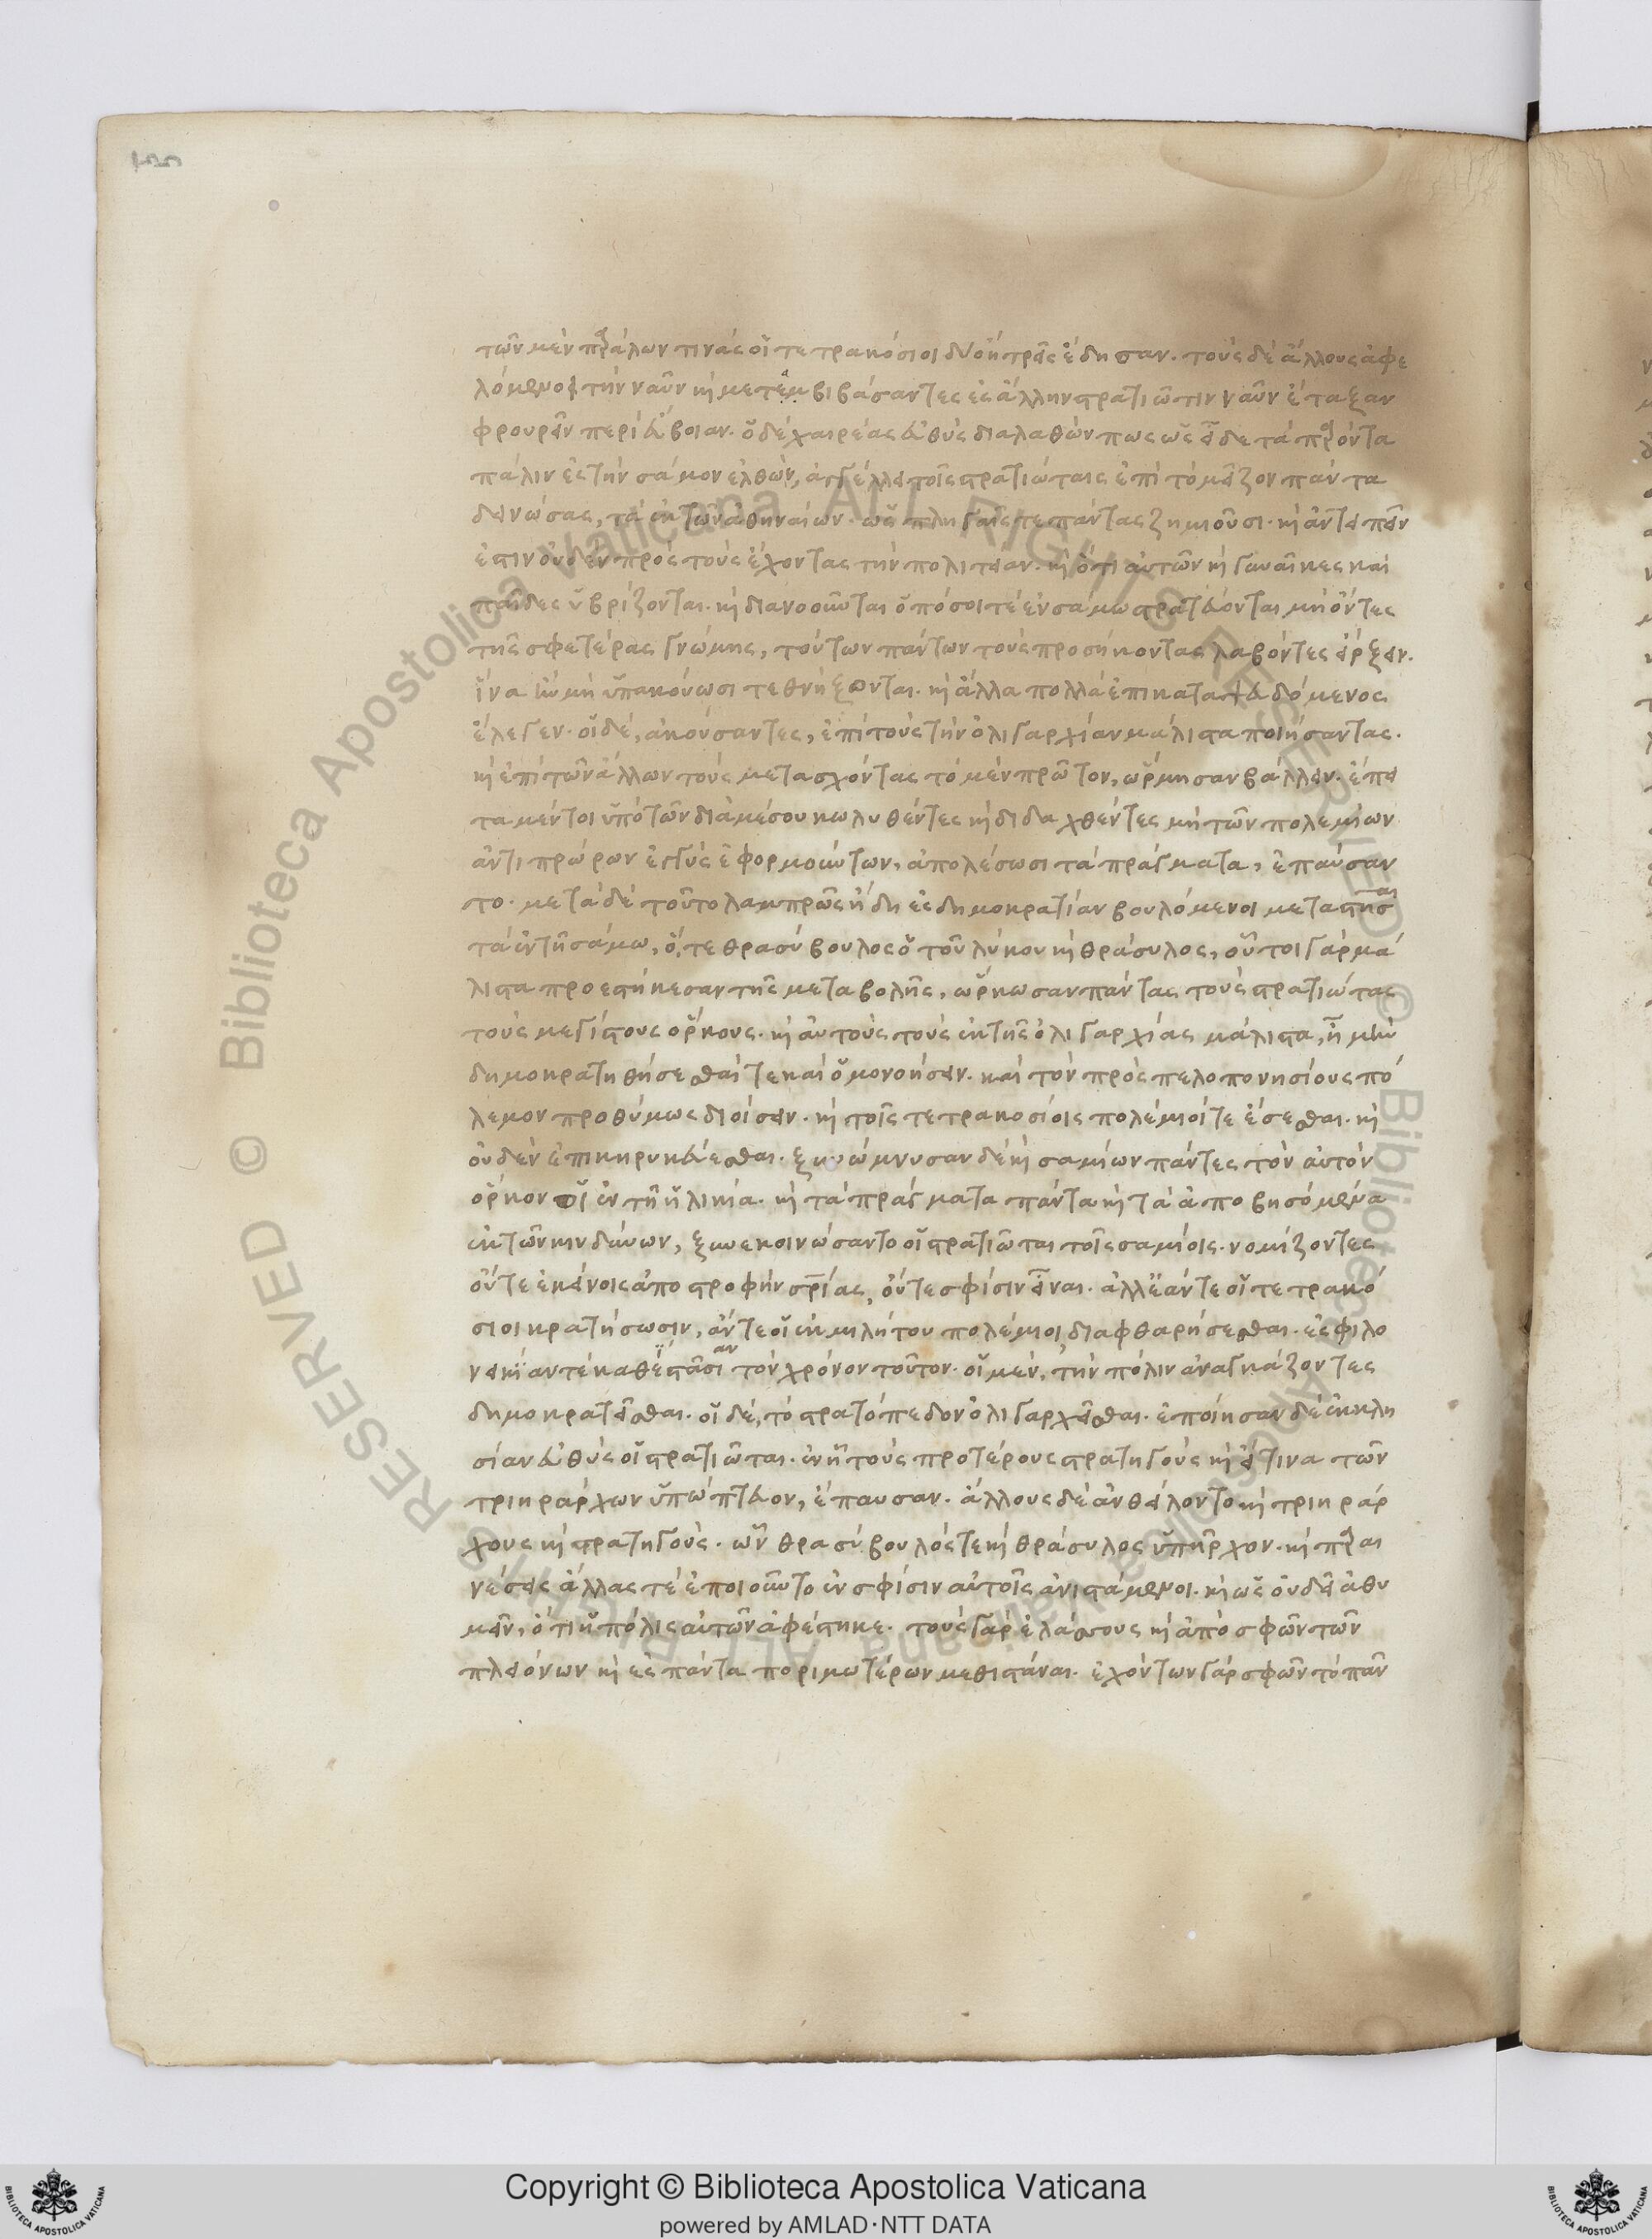 τῶν μὲν παράλων τινὰς οἱ τετρακόσιοι δύο ἢ τρεῖς ἔδησαν· τοὺς δὲ ἄλλους ἀφε
λόμενοι τὴν ναῦν καὶ μετεμβιβάσαντες ἐς ἄλλην στρατιῶτιν ναῦν ἔταξαν
φρουρεῖν περὶ εὔβοιαν· ὁ δὲ χαιρέας εὐθὺς διαλαθών πως ὡς εἶδε τὰ παρόντα
πάλιν ἐς τὴν σάμον ἐλθὼν, ἀγγέλλει τοῖς στρατιώταις ἐπὶ τὸ μεῖζον πάντα
δεινώσας, τὰ ἐκ τῶν ἀθηναίων· ὡς πληγαῖς τε πάντας ζημιοῦσι· καὶ ἀντειπεῖν
ἔστιν οὐδὲν πρὸς τοὺς ἔχοντας τὴν πολιτείαν· καὶ ὅτι αὐτῶν καὶ γυναῖκες καὶ
παῖδες ὑβρίζονται· καὶ διανοοῦνται ὁπόσοι τὲ ἐν σάμω στρατεύονται μὴ ὄντες
τῆς σφετέρας γνώμης, τούτων πάντων τοὺς προσήκοντας λαβόντες εἴρξειν·
ἵνα ἢν μὴ ὑπακούωσι τεθνήξονται· καὶ ἄλλα πολλὰ ἐπικαταψευδόμενος
ἔλεγεν· οἱ δὲ, ἀκούσαντες, ἐπὶ τοὺς τὴν ὀλιγαρχίαν μάλιστα ποιήσαντας·
καὶ ἐπὶ τῶν ἄλλων τοὺς μετασχόντας τὸ μὲν πρῶτον, ὥρμησαν βάλλειν· ἔπει
τα μέντοι ὑπὸ τῶν διὰ μέσου κωλυθέντες καὶ διδαχθέντες μὴ τῶν πολεμίων
ἀντιπρώρων ἐγγὺς ἐφορμούντων, ἀπολέσωσι τὰ πράγματα, ἐπαύσαν
το· μετὰ δὲ τοῦτο λαμπρῶς ἤδη ἐς δημοκρατίαν βουλόμενοι μεταστῆσαι
τὰ ἐν τῆ σάμω, ὅ, τε θρασύβουλος ὁ τοῦ λύκου καὶ θράσυλος, οὗτοι γὰρ μά
λιστα προεστήκεσαν τῆς μεταβολῆς, ὥρκωσαν πάντας τοὺς στρατιώτας
τοὺς μεγίστους ὅρκους· καὶ αὐτοὺς τοὺς ἐκ τῆς ὀλιγαρχίας μάλιστα, ἦ μὴν
δημοκρατηθήσεσθαί τε καὶ ὁμονοήσειν· καὶ τὸν πρὸς πελοπονησίους πό
λεμον προθύμως διοίσειν· καὶ τοῖς τετρακοσίοις πολέμιοί τε ἔσεσθαι· καὶ
οὐδὲν ἐπικηρυκεύεσθαι· ξυνώμνυσαν δὲ καὶ σαμίων πάντες τὸν αὐτὸν
ὅρκον οἱ ἐν τῆ ἡλικία· καὶ τὰ πράγματα πάντα καὶ τὰ ἀποβησόμενα
ἐκ τῶν κινδύνων, ξυνεκοινώσαντο οἱ στρατιῶται τοῖς σαμίοις· νομίζοντες
οὔτε ἐκείνοις ἀποστροφὴν σωτηρίας, οὔτε σφίσιν εἶναι· ἀλλ' ἐάν τε οἱ τετρακό
σιοι κρατήσωσιν, ἄν τε οἱ ἐκ μιλήτου πολέμιοι, διαφθαρήσεσθαι· ἐς φιλο
νεικίαν τὲ καθέστασαν τὸν χρόνον τοῦτον· οἱ μὲν, τὴν πόλιν ἀναγκάζοντες
δημοκρατεῖσθαι· οἱ δὲ, τὸ στρατόπεδον ὀλιγαρχεῖσθαι· ἐποίησαν δὲ ἐκκλη
σίαν εὐθὺς οἱ στρατιῶται· ἐν ἧ τοὺς προτέρους στρατηγοὺς καὶ εἴ τινα τῶν
τριηράρχων ὑπώπτευον, ἔπαυσαν· ἄλλους δὲ ἀνθείλοντο καὶ τριηράρ
χους καὶ στρατηγούς· ὧν θρασύβουλός τε καὶ θράσυλος ὑπῆρχον· καὶ παραι
νέσεις ἄλλας τὲ ἐποιοῦντο ἐν σφίσιν αὐτοῖς ἀνιστάμενοι· καὶ ὡς οὐ δεῖ ἀθυ
μεῖν, ὅτι ἡ πόλις αὐτῶν ἀφέστηκε· τοὺς γὰρ ἐλάσσους καὶ ἀπὸ σφῶν τῶν
πλειόνων καὶ ἐς πάντα ποριμωτέρων μεθιστάναι· ἐχόντων γὰρ σφῶν τὸ πᾶν
© Biblioteca Apostolica Vaticana ALL RIGHTS RESERVED
Copyright © Biblioteca Apostolica Vaticana
powered by AMLAD·NTT DATA
BIBLIOTECA APOSTOLICA VATICANA
BIBLIOTECA APOSTOLICA VATICANA